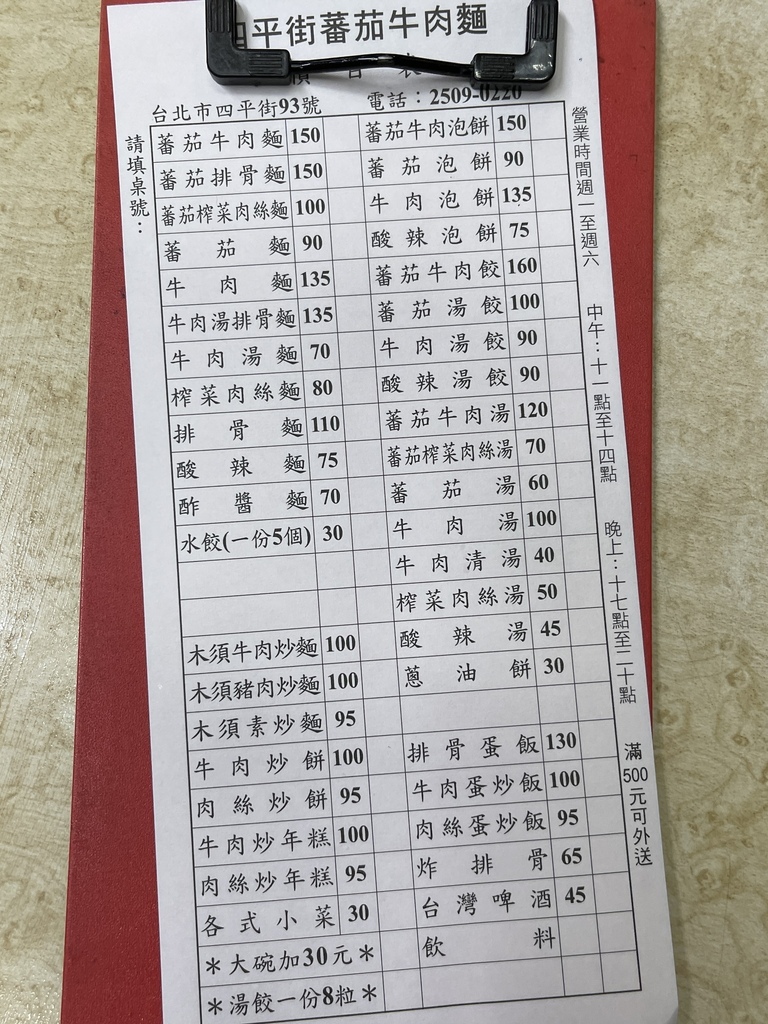 四平街蕃茄牛肉麵
台北市四平街93號 電話：2509-0220
請填桌號：
蕃茄牛肉麵 150
蕃茄排骨麵 150
蕃茄榨菜肉絲麵 100
蕃茄麵 90
牛肉麵 135
牛肉湯排骨麵 135
牛肉湯麵 70
榨菜肉絲麵 80
排骨麵 110
酸辣麵 75
酢醬麵 70
水餃(一份5個) 30
木須牛肉炒麵 100
木須豬肉炒麵 100
木須素炒麵 95
牛肉炒餅 100
肉絲炒餅 95
牛肉炒年糕 100
肉絲炒年糕 95
各式小菜 30
＊大碗加30元＊
＊湯餃一份8粒＊
蕃茄牛肉泡餅 150
蕃茄泡餅 90
牛肉泡餅 135
酸辣泡餅 75
蕃茄牛肉餃 160
蕃茄湯餃 100
牛肉湯餃 90
酸辣湯餃 90
蕃茄牛肉湯 120
蕃茄榨菜肉絲湯 70
蕃茄湯 60
牛肉湯 100
牛肉清湯 40
榨菜肉絲湯 50
酸辣湯 45
蔥油餅 30
排骨蛋飯 130
牛肉蛋炒飯 100
肉絲蛋炒飯 95
炸排骨 65
台灣啤酒 45
飲料
營業時間週一至週六 中午：十一點至十四點 晚上：十七點至二十點 滿500元可外送